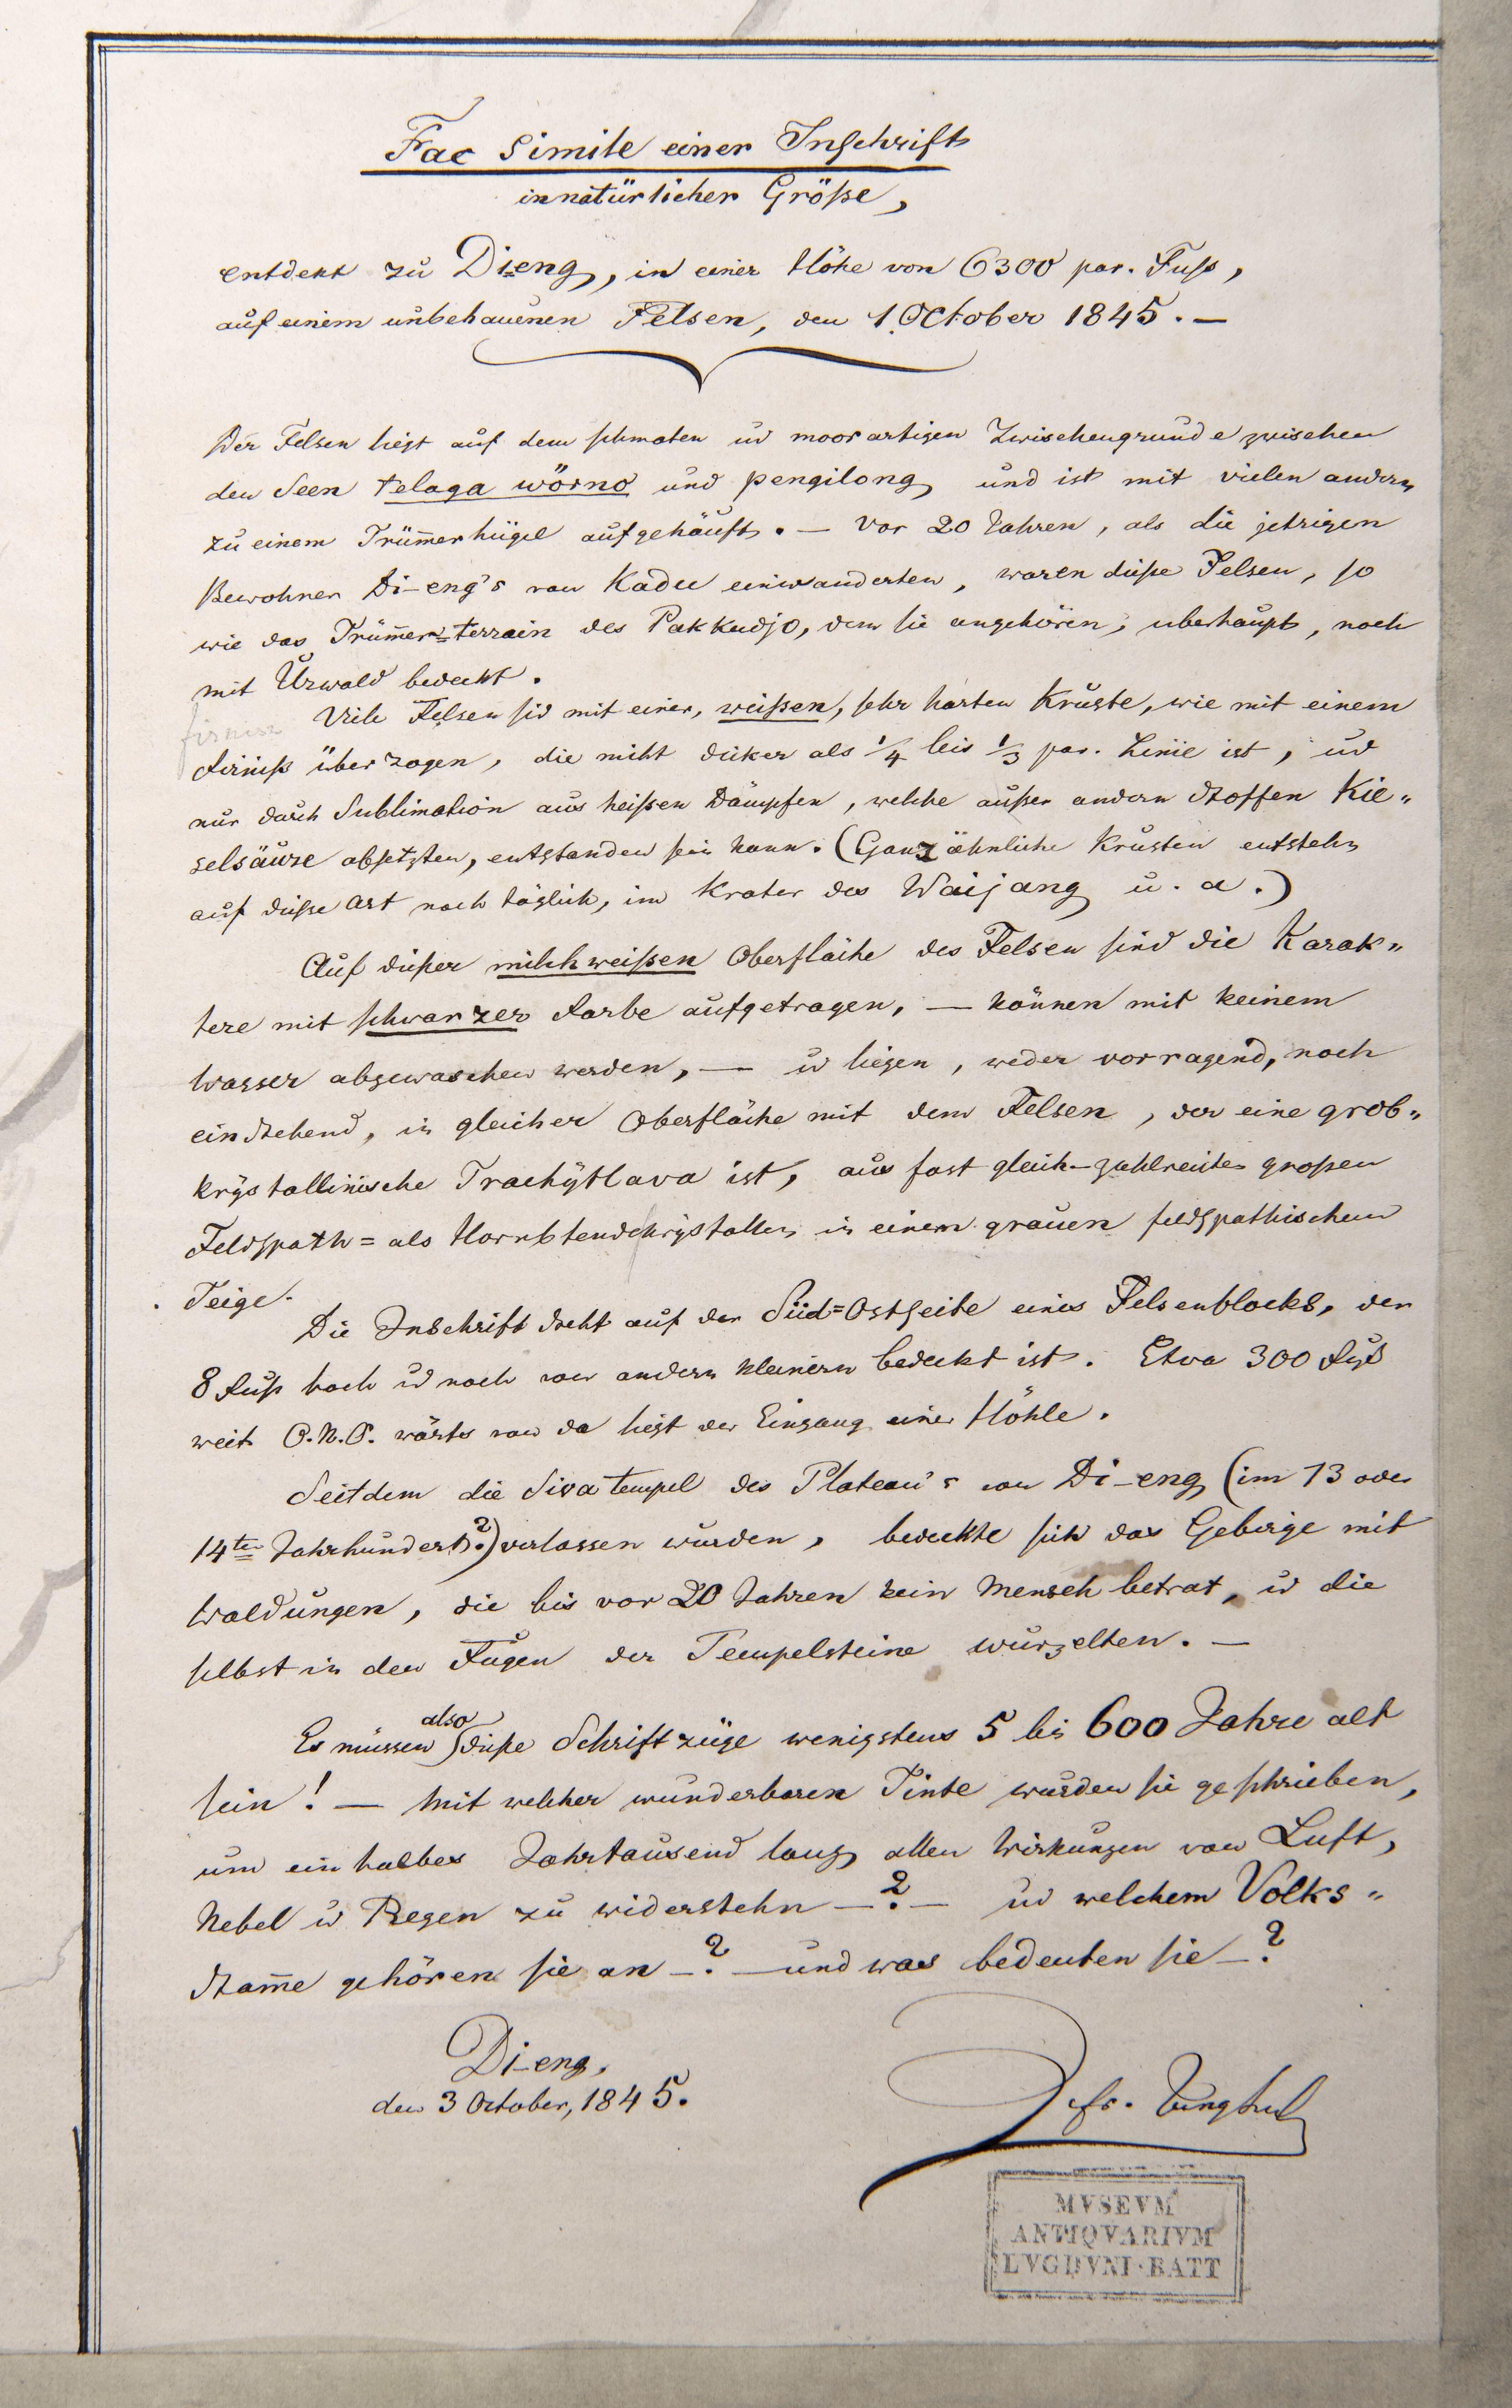 Fac Simile einer Inschrift
in natürlicher Größe,
entdekt zu Di-eng, in einer Höhe von 6300 par. Fuss,
auf einem unbehauenen Felsen, den 1. October 1845. —
Der Felsen liegt auf dem schmalen ud moorartigen Zwischengrunde zwischen
den Seen telaga wörno und pengilong und ist mit vielen andern
zu einem Trüm̄erhügel aufgehäuft. — Vor 20 Jahren, als die jetzigen
Bewohner Di-eng's von Kadu einwanderten, waren diese Felsen, so
wie das Trüm̄er=terrain des Pakkudjo, dem sie angehören, uberhaupt, noch
mit Urwald bedeckt.
Viele Felsen sid mit einer, weißen, sehr harten Kruste, wie mit einem
firniss
Firniß überzogen, die nicht dicker als 1/4 bis 1/3 par. Linie ist, ud
nur durch Sublimation aus heißen Dämpfen, welche außer andern Stoffen Kie„
selsäure absetzten, entstanden sein kann. (Ganz ähnliche Krusten entstehn
auf diese Art noch täglich, im Krater des Waijang u. a.)
Auf dießer milchweißen Oberfläche des Felsen sind die Karak„
tere mit schwarzer Farbe aufgetragen, — können mit keinem
Wasser abgewaschen werden, — ud liegen, weder vorragend, noch
einstehend, in gleicher Oberfläche mit dem Felsen, der eine grob„
krystallinische Trachÿtlava ist, aus fast gleich-zahlreichen großen
Feldspath= als Hornblendekrystallen in einem grauen feldspathischen
Teige.
Die Inschrift steht auf der Süd=Ostseite eines Felsenblocks, der
8 Fuß hoch ud noch von andern kleinern bedeckt ist. Etwa 300 Fuß
weit O.N.O. wärts von da liegt der Eingang einer Höhle.
Seitdem die Siva tempel des Plateau's von Di-eng (im 13 oder
14ten Jahrhundert?) verlassen wurden, bedeckte sich das Gebirge mit
Waldungen, die bis vor 20 Jahren kein Mensch betrat, ud die
selbst in den Fugen der Tempelsteine wurzelten. —
Es müssen also diese Schriftzüge wenigstens 5 bis 600 Jahre alt
sein! — Mit welcher wunderbaren Tinte wurden sie geschrieben,
um ein halbes Jahrtausend lang allen Wirkungen von Luft,
Nebel ud Regen zu widerstehn —?— ud welchem Volks„
stam̄e gehören sie an —? — und was bedeuten sie —?
Di-eng,
den 3 October, 1845.
Dr fr. Junghuhn
MVSEVM
ANTIQVARIVM
LVGDVNI·BATT